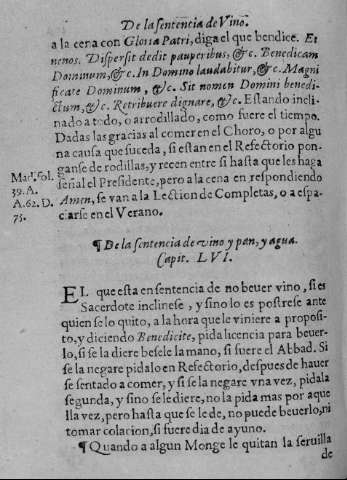 De la sentencia de Vino.
a la cena con Gloria Patri, diga el que bendice. Et
nenos. Dispersit dedit pauperibus, &c. Benedicam
Dominum, &c. In Domino laudabitur, &c. Magni
ficate Dominum, &c. Sit nomen Domini benedi-
ctum, &c. Retribuere dignare, &c. Estando incli-
nado a todo, o arrodillado, como fuere el tiempo.
Dadas las gracias al comer en el Choro, o por algu
na causa que suceda, si estan en el Refectorio pon-
ganse de rodillas, y recen entre si hasta que les haga
señal el Presidente, pero a la cena en respondiendo
Amen, se van a la Lection de Completas, o a espa-
ciarse en el Verano.
Mad. fol.
39. A.
A. 62. D.
73.
¶ De la sentencia de vino y pan, y agua.
Capit. LVI.
EL que esta en sentencia de no beuer vino, si es
Sacerdote inclinese, y sino lo es postrese ante
quien se lo quito, a la hora que le viniere a proposi-
to, y diciendo Benedicite, pida licencia para beuer-
lo, si se la diere besele la mano, si fuere el Abbad. Si
se la negare pidalo en Refectorio, despues de hauer
se sentado a comer, y si se la negare vna vez, pidala
segunda, y sino se le diere, no la pida mas por aque
lla vez, pero hasta que se le de, no puede beuerlo, ni
tomar colacion, si fuere dia de ayuno.
¶ Quando a algun Monge le quitan la seruilla
de